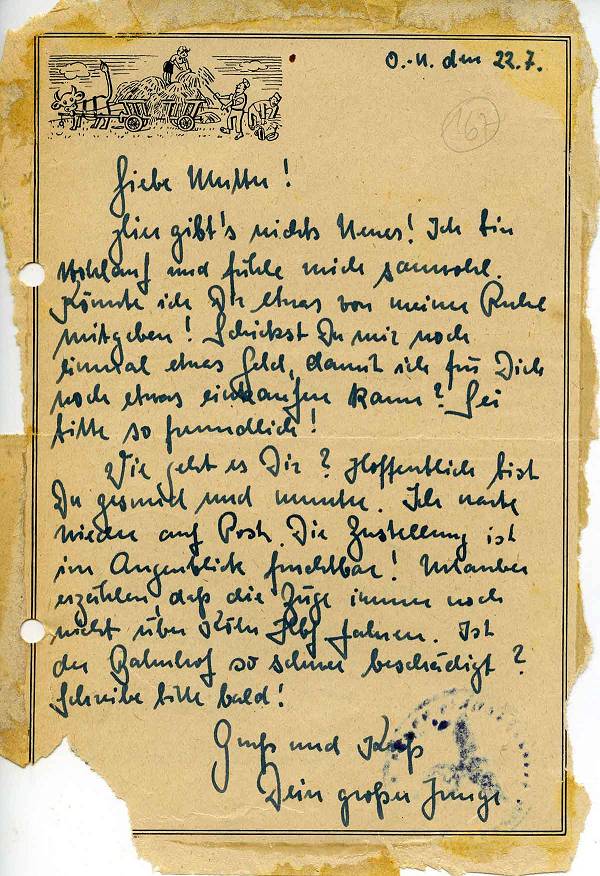 O.-U. den 22.7.
167
Liebe Mutter!
Hier gibt's nichts Neues! Ich bin
wohlauf und fühle mich sauwohl.
Könnte ich Dir etwas von meiner Ruhe
mitgeben! Schickst Du mir noch
einmal etwas Geld, damit ich für Dich
noch etwas einkaufen kann? Sei
bitte so freundlich!
Wie geht es Dir? Hoffentlich bist
Du gesund und munter. Ich warte
wieder auf Post. Die Zustellung ist
im Augenblick furchtbar! Urlauber
erzählen, daß die Züge immer noch
nicht über Köln Hbf fahren. Ist
der Bahnhof so schwer beschädigt?
Schreibe bitte bald!
Gruß und Kuß
Dein großer Junge